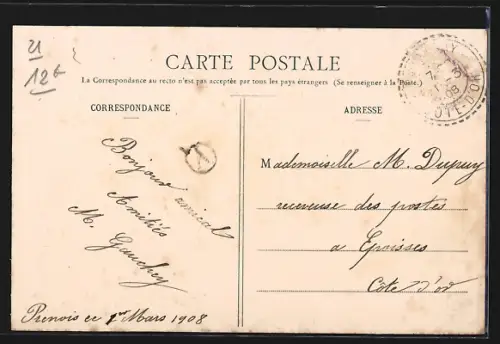 21
12€
CARTE POSTALE
La Correspondance au recto n'est pas acceptée par tous les pays étrangers (Se renseigner à la Poste.)
CORRESPONDANCE
ADRESSE
Bonjour amical
Amitiés
M. Gauchey
Prenois ce 1er Mars 1908
Mademoiselle M. Dupuy
receveuse des postes
a Epoisses
Côte d'or
08
CÔTE-D'OR